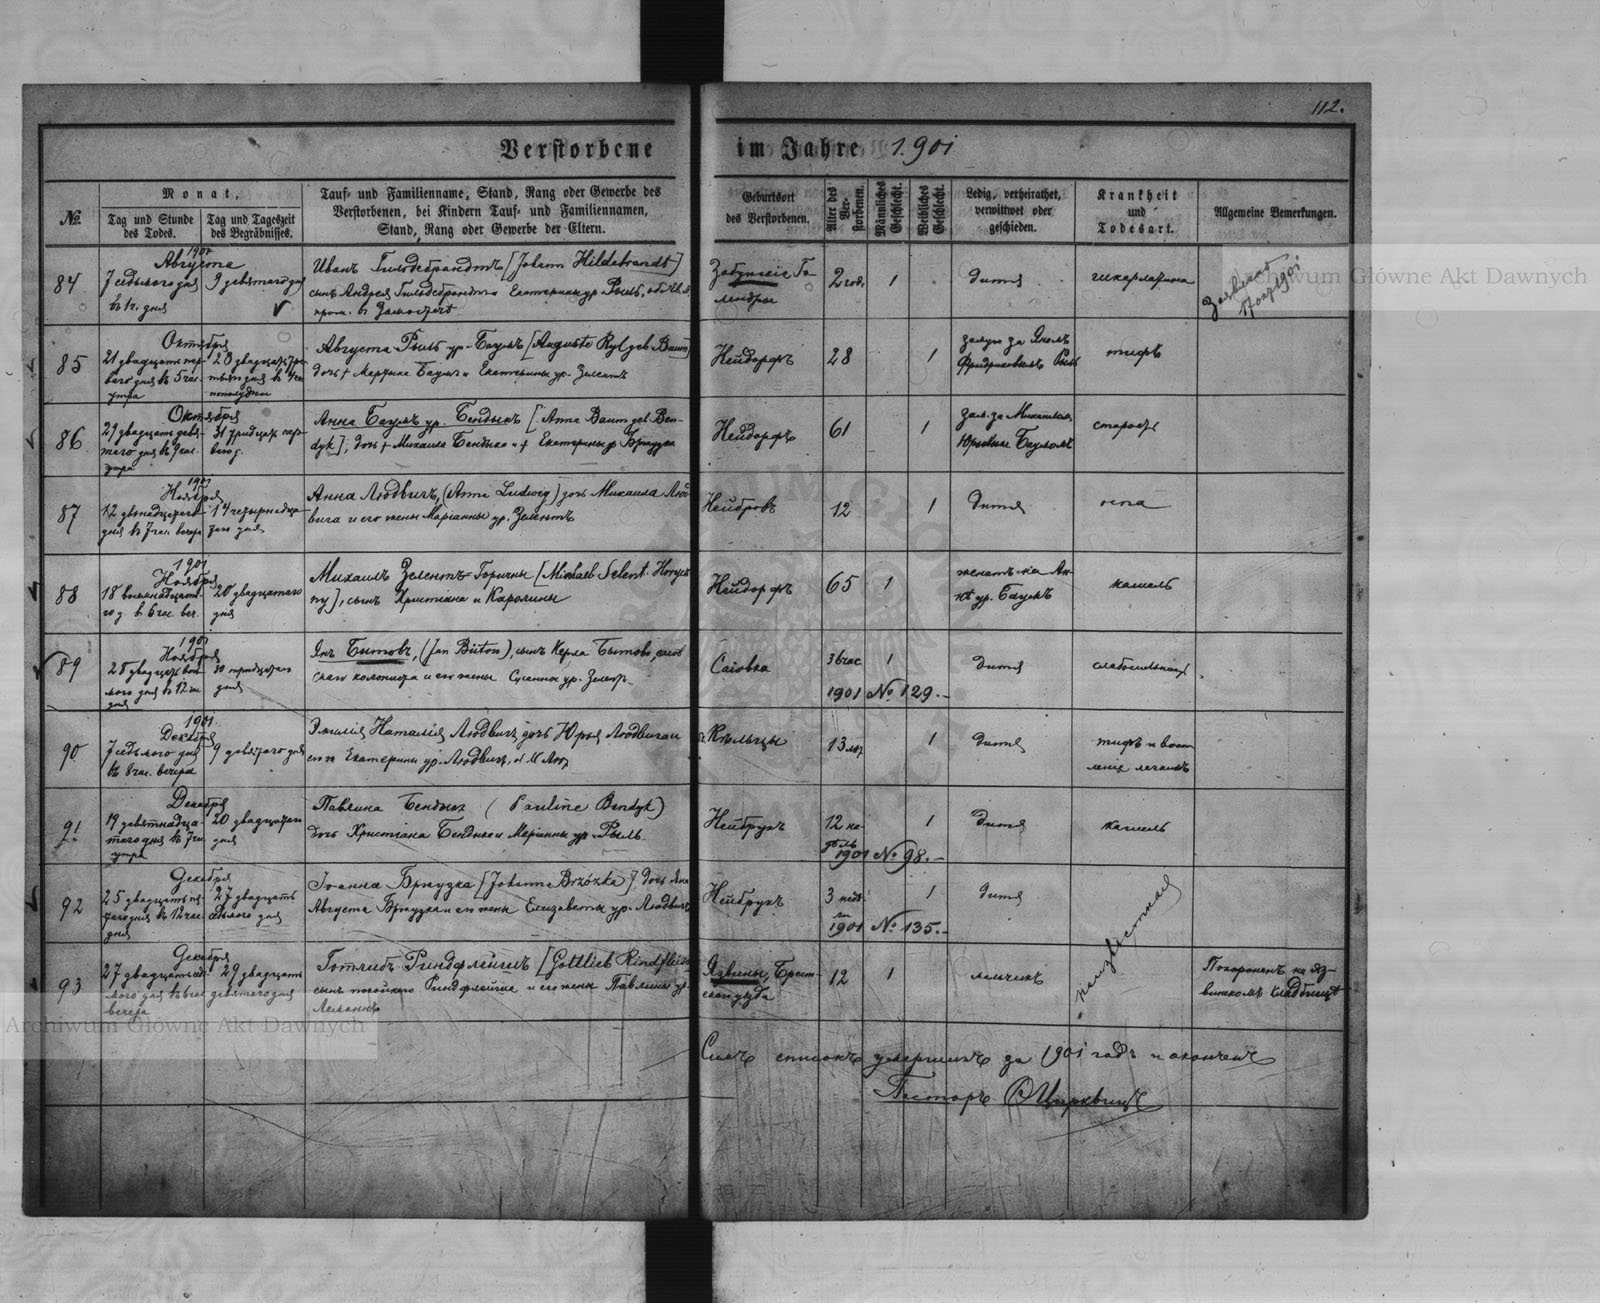 112.
Verstorbene im Jahre 1901
№
Monat.
Tag und Stunde des Todes.
Tag und Tageszeit des Begräbnisses.
Tauf- und Familienname, Stand, Rang oder Gewerbe des
Verstorbenen, bei Kindern Tauf- und Familiennamen,
Stand, Rang oder Gewerbe der Eltern.
Geburtsort
des Verstorbenen.
Alter des Ver-
storbenen.
Männliches
Geschlecht.
Weibliches
Geschlecht.
Ledig, verheirathet,
verwittwet oder
geschieden.
Krankheit
und
Todesart.
Allgemeine Bemerkungen.
84
1901
Августа
7 седьмого дня
9 девятого дня
Иванъ Гильдебрандтъ [Johann Hildebrandt]
сынъ Андрея Гильдебрандта и Екатерины ур. Рыль,
Забужскіе Го-
лендры
2 год.
1
дитя
шкарлатина
85
Октября
21 двадцать пер-
ваго дня въ 5 час.
утра
Августа Рыль ур. Баумъ [Auguste Ryl geb Baum]
дочь † Мартина Баума и Екатерины ур. Зелентъ
Нейдорфъ
28
1
тифъ
86
Октября
29 двадцать девя-
таго дня въ 9 час.
утра
31 тридцать пер-
ваго д.
Анна Баумъ ур. Бендыкъ [Anna Baum geb Ben-
dyk], дочь † Михаила Бендыка и † Екатерины ур Бржузка
Нейдорфъ
61
1
старость
87
1901
Ноября
12 двѣнадцатого
дня въ 7 час. вечера
14 четырнадца-
таго дня
Анна Людвигъ, (Anna Ludwig) дочь Михаила Люд-
вига и его жены Маріанны ур. Зелентъ
Нейбровъ
12
1
дитя
оспа
88
1901
Ноября
18 восемнадцат-
го д. въ 6 час. веч.
20 двадцатаго
дня
Михаилъ Зелентъ-Горичны [Michael Selent-
ny], сынъ Христіана и Каролины
Нейдорфъ
65
1
женатъ на Ан-
нѣ ур. Баумъ
кашель
89
1901
Ноября
28 двадцать вось-
мого дня въ 12 ч.
дня
30 тридцатаго
дня
Янъ Бытовъ, (Jan Büton), сынъ Карла Бытова,
скаго колониста и его жены Сусанны ур. Зелентъ
Саіовка
36 час
1
1901 № 129.-
дитя
90
1901.
Декабря
7 седьмого дня
въ 8 час. вечера
9 девятаго дня
Эмилія Наталія Людвигъ дочь Юрья Людвига и
его ж Екатерины ур. Людвигъ,
Кѣльцы
13 лѣт
1
дитя
тифъ и воспа-
леніе легкихъ
91
Декабря
19 девятнадца-
таго дня въ 7 час
утра
20 двадцатаго
дня
Павлина Бендыкъ (Pauline Bendyk)
дочь Христіана Бендыка и Маріанны ур. Рыль.
Нейбрукъ
12 не-
дѣль
1
1901 № 98.-
дитя
кашель
92
Декабря
25 двадцать пя-
таго дня въ 12 час.
дня
27 двадцать
седьмого дня
Іоанна Бржузка [Johanna Brzózka] дочь Яна
Августа Бржузка и его жены Елизаветы ур. Людвигъ
Нейбрукъ
3 недѣ-
ли
1
1901 № 135.-
дитя
неизвѣстная
93
Декабря
27 двадцать седь-
мого дня въ 6 час
вечера
29 двадцать
девятаго дня
Готлибъ Риндфлейшъ [Gottlieb Rindfleisch
сынъ Риндфлейша и его жены Павлины ур.
Леманнъ
Язвины, Брест-
скаго уѣзда
12
1
мальчикъ
Похороненъ на Яз-
винскомъ кладбищѣ
Симъ списокъ умершихъ за 1901 годъ и оконченъ
Пасторъ
Archiwum Główne Akt Dawnych
Archiwum Główne Akt Dawnych